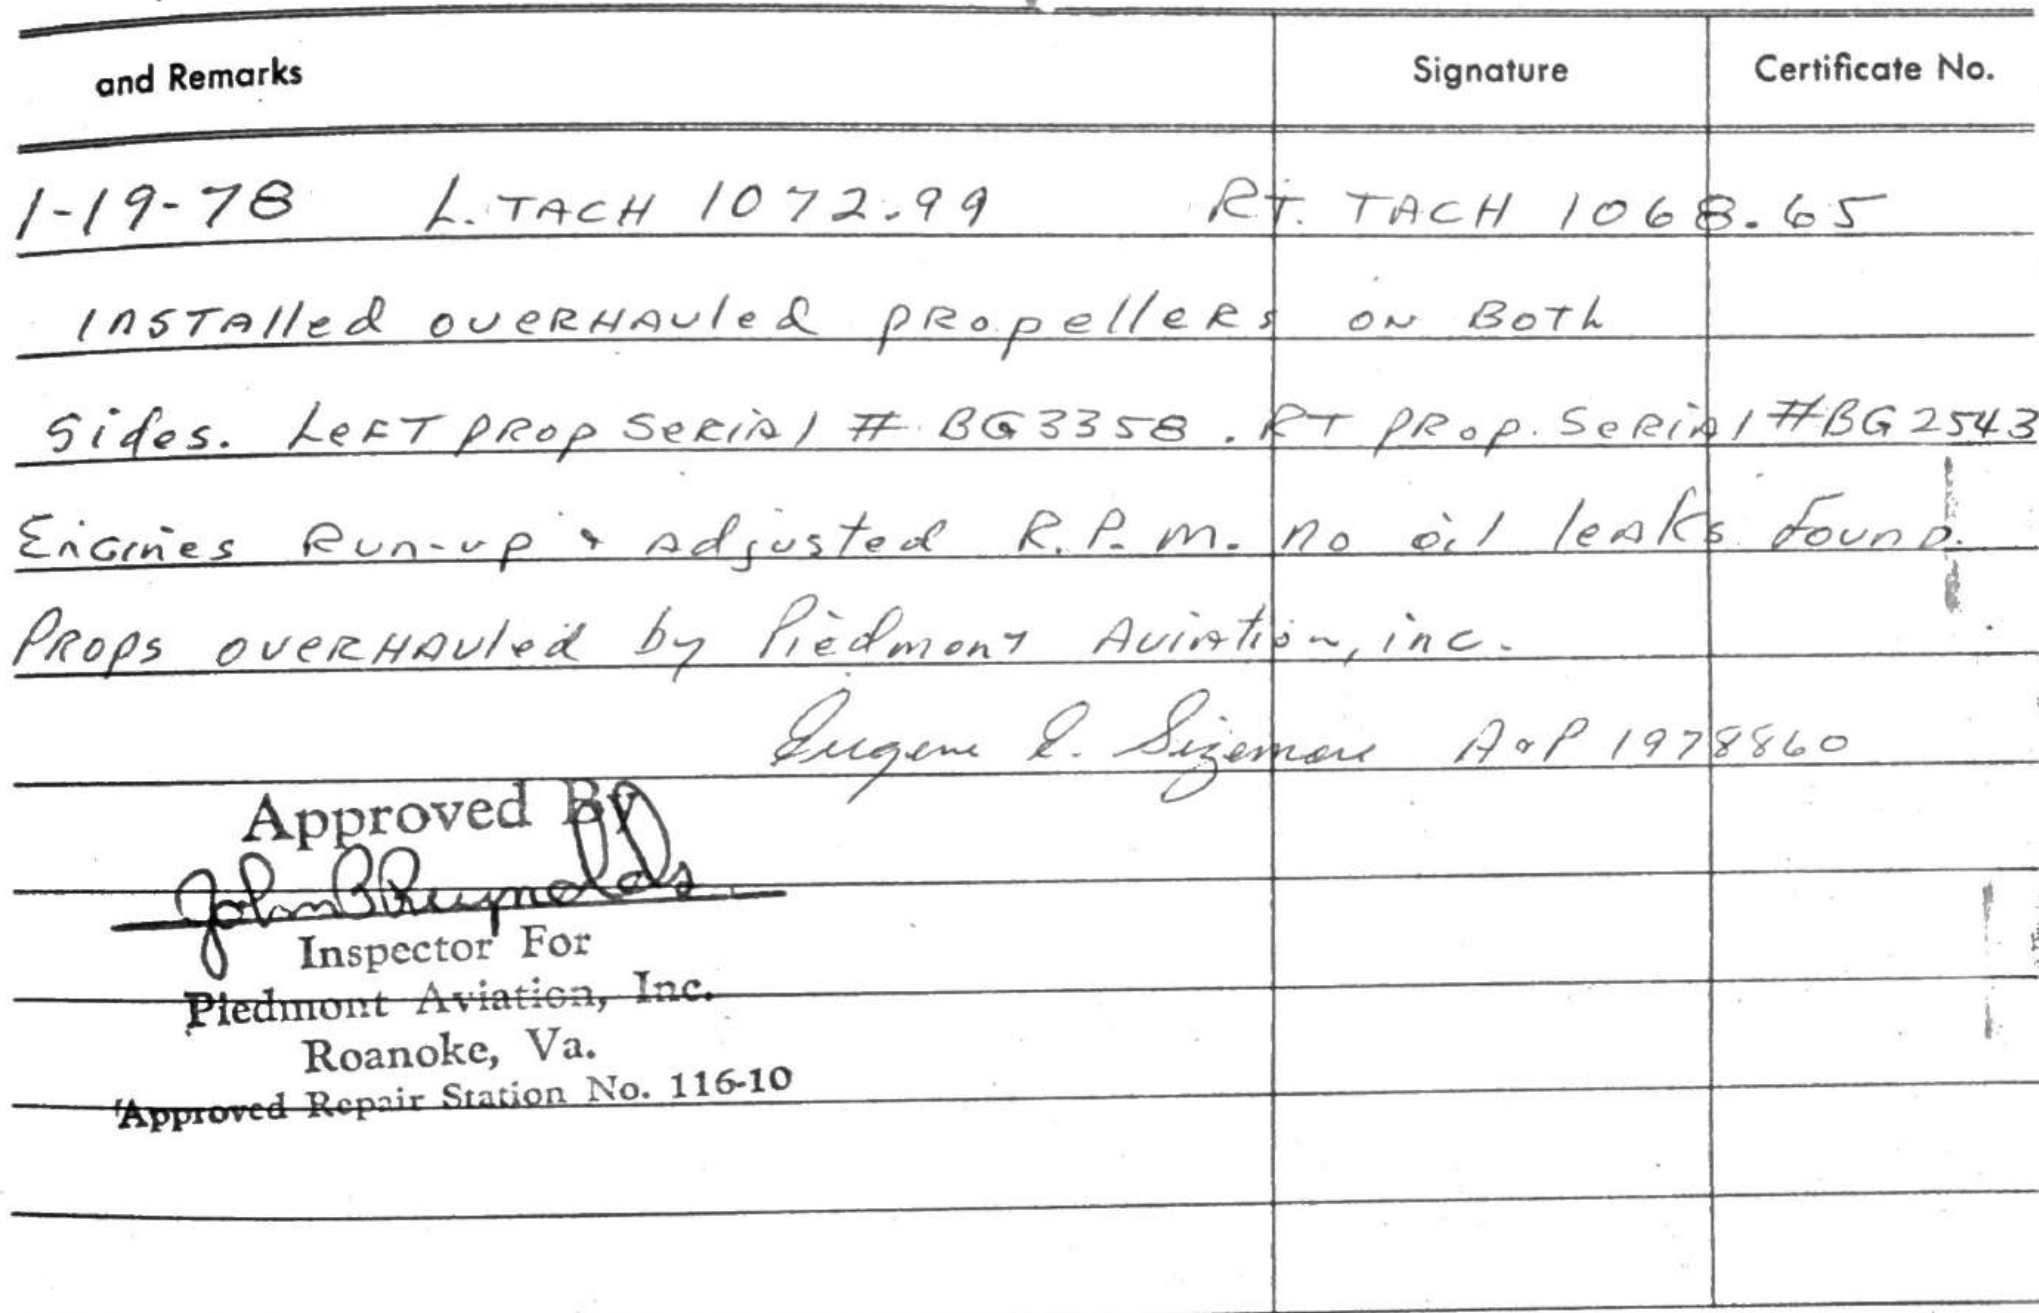 and Remarks Signature Certificate No.
1-19-78 L. TACH 1072.99 RT. TACH 1068.65
installed overhauled propellers on Both
sides. Left prop serial # BG3358. RT prop. serial #BG2543
Engines Run-up & adjusted R.P.M. no oil leaks found.
Props overhauled by Piedmont Aviation, inc.
Eugene E. Sizemore A&P 1978860
Approved By
John B Reynolds
Inspector For
Piedmont Aviation, Inc.
Roanoke, Va.
Approved Repair Station No. 116-10